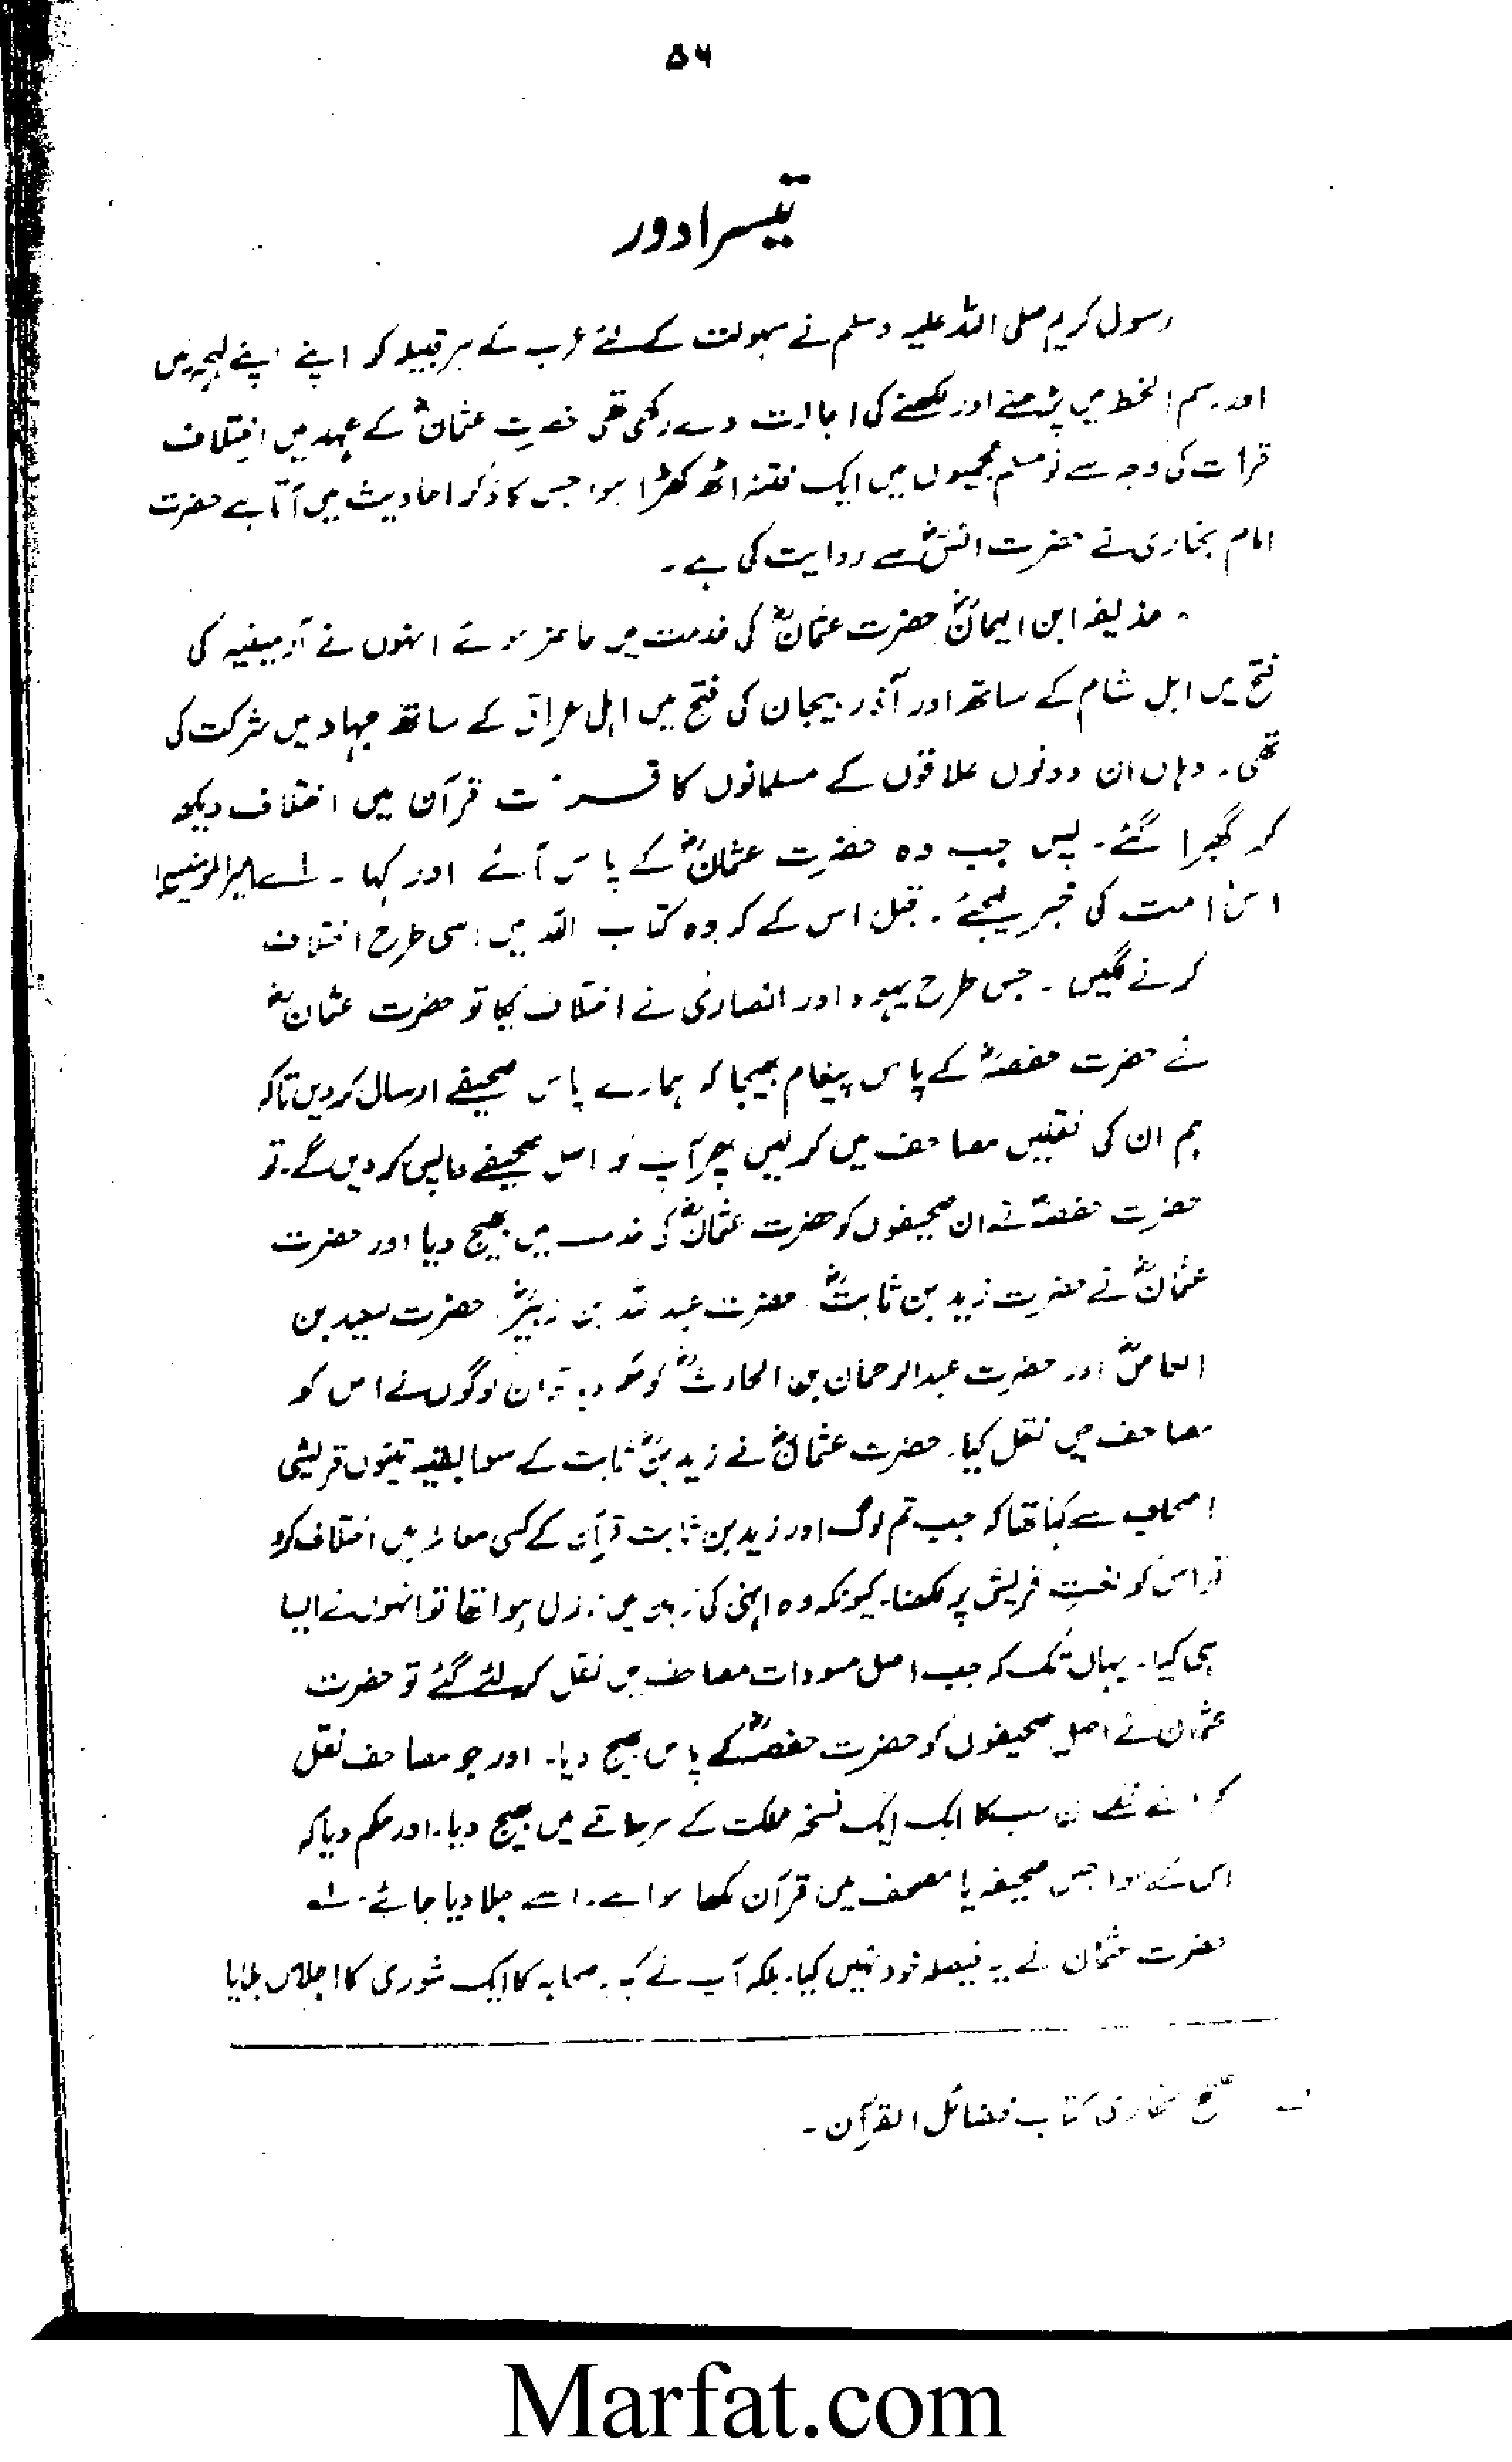 ۵۶
تیسرا دور
رسول کریم صلی اللہ علیہ وسلم نے سہولت کے لئے عرب کے ہر قبیلہ کو اپنے اپنے لہجہ میں
اور رسم الخط میں پڑھنے اور لکھنے کی اجازت دے رکھی تھی حضرت عثمانؓ کے عہد میں اختلاف
قرات کی وجہ سے نو مسلم عجمیوں میں ایک فتنہ اٹھ کھڑا ہوا جس کا ذکر احادیث میں آتا ہے حضرت
امام بخاری نے حضرت انسؓ سے روایت کی ہے۔
حذیفہ ابن الیمانؓ حضرت عثمانؓ کی خدمت میں حاضر ہوئے انہوں نے آرمینیہ کی
فتح میں اہل شام کے ساتھ اور آذر بیجان کی فتح میں اہل عراق کے ساتھ جہاد میں شرکت کی
تھی۔ وہاں ان دونوں علاقوں کے مسلمانوں کا قرات قرآن میں اختلاف دیکھ
کر گھبرا گئے۔ پس جب وہ حضرت عثمانؓ کے پاس آئے اور کہا۔ اے امیر المومنین!
اس امت کی خبر لیجئے۔ قبل اس کے کہ وہ کتاب اللہ میں اسی طرح اختلاف
کرنے لگیں۔ جس طرح یہود اور انصاری نے اختلاف کیا تو حضرت عثمانؓ
نے حضرت حفصہؓ کے پاس پیغام بھیجا کہ ہمارے پاس صحیفے ارسال کر دیں تاکہ
ہم ان کی نقلیں مصاحف میں کر لیں پھر آپ کو اصل صحیفے واپس کر دیں گے۔ تو
حضرت حفصہؓ نے ان صحیفوں کو حضرت عثمانؓ کی خدمت میں بھیج دیا اور حضرت
عثمانؓ نے حضرت زید بن ثابتؓ، حضرت عبد اللہ بن زبیرؓ، حضرت سعید بن
العاصؓ اور حضرت عبدالرحمان بن الحارثؓ کو حکم دیا تو ان لوگوں نے اس کو
مصاحف میں نقل کیا۔ حضرت عثمانؓ نے زید بنؓ ثابت کے سوا بقیہ تینوں قریشی
اصحاب سے کہا تھا کہ جب تم لوگ اور زید بن ثابت قرآن کے کسی معاملہ میں اختلاف کرو
تو اس کو لغت قریش پر لکھنا۔ کیونکہ وہ انہی کی زبان میں نازل ہوا تھا تو انہوں نے ایسا
ہی کیا۔ یہاں تک کہ جب اصل مسودات مصاحف میں نقل کر لئے گئے تو حضرت
عثمان نے اصل صحیفوں کو حضرت حفصہؓ کے پاس بھیج دیا۔ اور جو مصاحف نقل
کئے تھے ان سب کا ایک ایک نسخہ مملکت کے ہر علاقے میں بھیج دیا۔ اور حکم دیا کہ
اس کے سوا جس صحیفہ یا مصحف میں قرآن لکھا ہوا ہے۔ اسے جلا دیا جائے۔ لہ
حضرت عثمان نے یہ فیصلہ خود نہیں کیا۔ بلکہ آپ نے صحابہ کا ایک شوریٰ کا اجلاس بلایا
صحیح بخاری کتاب فضائل القرآن۔
Marfat.com